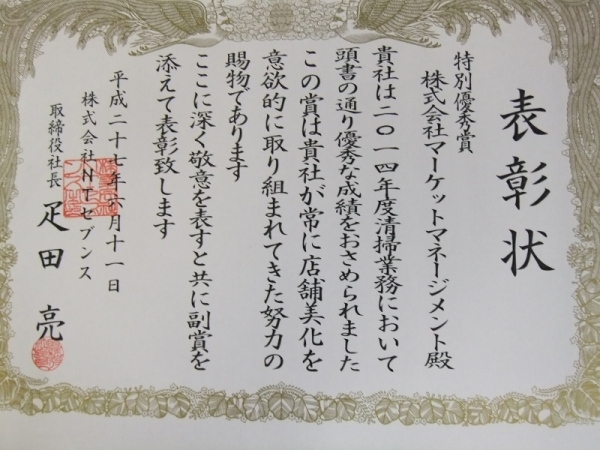 表彰状
特別優秀賞
株式会社マーケットマネージメント殿
貴社は二〇一四年度清掃業務において
頭書の通り優秀な成績をおさめられました
この賞は貴社が常に店舗美化を
意欲的に取り組まれてきた努力の
賜物であります
ここに深く敬意を表すと共に副賞を
添えて表彰致します
平成二十七年六月十一日
株式会社NTセブンス
取締役社長 疋田 亮